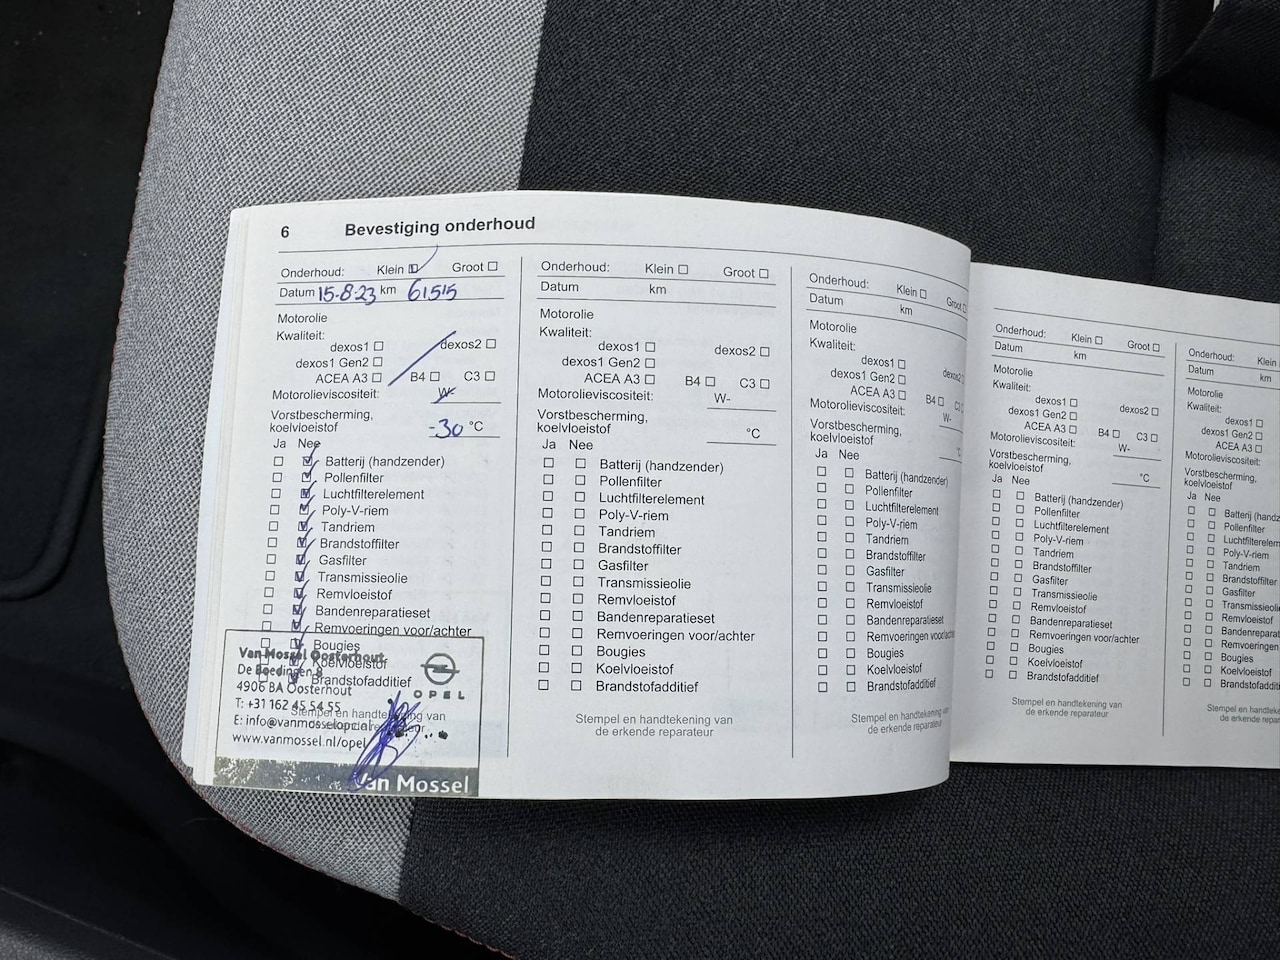 6 Bevestiging onderhoud
Onderhoud: Klein Groot
Datum 15-8-23 km 61515
Motorolie
Kwaliteit:
dexos1 dexos2
dexos1 Gen2
ACEA A3 B4 C3
Motorolieviscositeit: W-
Vorstbescherming,
koelvloeistof -30 °C
Ja Nee
Batterij (handzender)
Pollenfilter
Luchtfilterelement
Poly-V-riem
Tandriem
Brandstoffilter
Gasfilter
Transmissieolie
Remvloeistof
Bandenreparatieset
Remvoeringen voor/achter
Bougies
Koelvloeistof
Brandstofadditief
Van Mossel Oosterhout
4906 BA Oosterhout
T: +31 162 45 54 55
www.vanmossel.nl/opel
OPEL
Van Mossel
Onderhoud: Klein Groot
Datum km
Motorolie
Kwaliteit:
dexos1 dexos2
dexos1 Gen2
ACEA A3 B4 C3
Motorolieviscositeit: W-
Vorstbescherming,
koelvloeistof °C
Ja Nee
Batterij (handzender)
Pollenfilter
Luchtfilterelement
Poly-V-riem
Tandriem
Brandstoffilter
Gasfilter
Transmissieolie
Remvloeistof
Bandenreparatieset
Remvoeringen voor/achter
Bougies
Koelvloeistof
Brandstofadditief
Stempel en handtekening van
de erkende reparateur
Onderhoud: Klein Groot
Datum km
Motorolie
Kwaliteit:
dexos1
dexos1 Gen2
ACEA A3 B4
Motorolieviscositeit: W-
Vorstbescherming,
koelvloeistof
Ja Nee
Batterij (handzender)
Pollenfilter
Luchtfilterelement
Poly-V-riem
Tandriem
Brandstoffilter
Gasfilter
Transmissieolie
Remvloeistof
Bandenreparatieset
Remvoeringen
Bougies
Koelvloeistof
Brandstofadditief
Stempel en handtekening van
de erkende reparateur
Onderhoud: Klein Groot
Datum km
Motorolie
Kwaliteit:
dexos1 dexos2
dexos1 Gen2
ACEA A3 B4 C3
Motorolieviscositeit: W-
Vorstbescherming,
koelvloeistof °C
Ja Nee
Batterij (handzender)
Pollenfilter
Luchtfilterelement
Poly-V-riem
Tandriem
Brandstoffilter
Gasfilter
Transmissieolie
Remvloeistof
Bandenreparatieset
Remvoeringen voor/achter
Bougies
Koelvloeistof
Brandstofadditief
Stempel en handtekening van
de erkende reparateur
Onderhoud: Klein
Datum km
Motorolie
Kwaliteit:
dexos1
dexos1 Gen2
ACEA A3
Motorolieviscositeit:
Vorstbescherming,
koelvloeistof
Ja Nee
Pollenfilter
Poly-V-riem
Tandriem
Brandstoffilter
Gasfilter
Remvloeistof
Remvoeringen
Bougies
Koelvloeistof